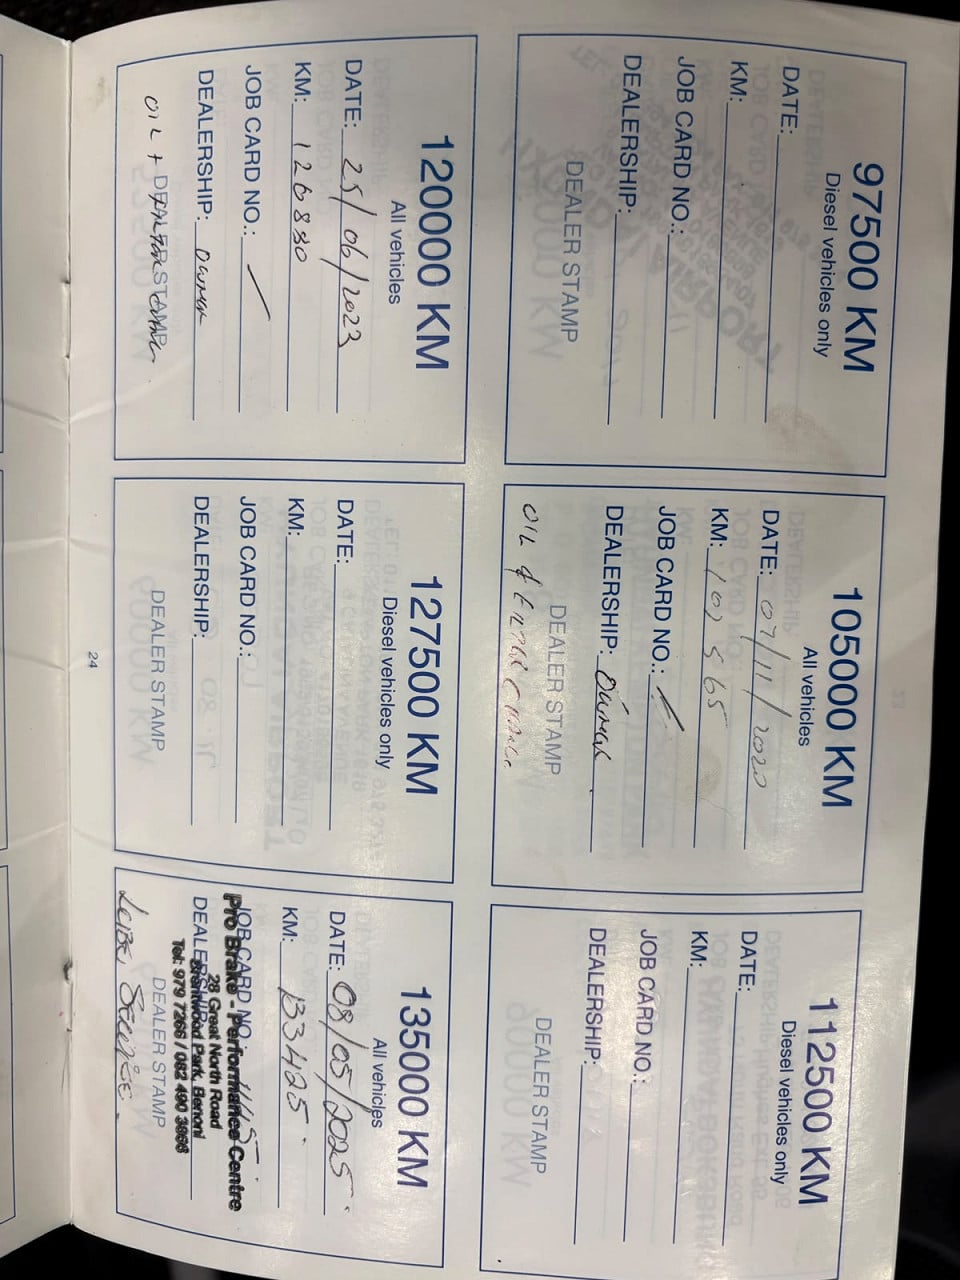 97500 KM
Diesel vehicles only
DATE:
KM:
JOB CARD NO.:
DEALERSHIP:
DEALER STAMP
105000 KM
All vehicles
DATE: 07/11/2020
KM: 107565
JOB CARD NO.:
DEALERSHIP: OWNER
DEALER STAMP
OIL & FILTER CHANGE
112500 KM
Diesel vehicles only
DATE:
KM:
JOB CARD NO.:
DEALERSHIP:
DEALER STAMP
120000 KM
All vehicles
DATE: 25/06/2023
KM: 126880
JOB CARD NO.:
DEALERSHIP: OWNER
DEALER STAMP
OIL +
127500 KM
Diesel vehicles only
DATE:
KM:
JOB CARD NO.:
DEALERSHIP:
DEALER STAMP
135000 KM
All vehicles
DATE: 08/05/2025
KM: 133425
JOB CARD NO.
Pro Brake - Performance Centre
28 Great North Road
DEALERSHIP:
Brentwood Park, Benoni
Tel: 979 7266 / 082 490 3868
DEALER STAMP
SERVICE.
24